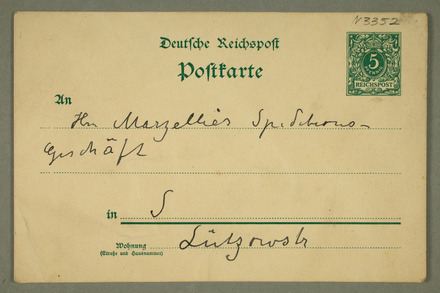 N3352
Deutsche Reichspost
Postkarte
5
REICHSPOST
An
Hrn Marzellier Speditions-
Geschäft
in S
Wohnung
(Straße und Hausnummer)
Lützowstr